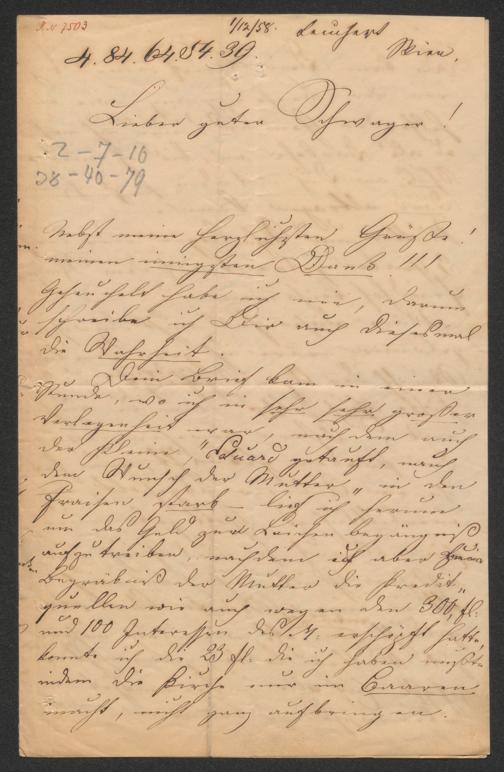 H. N 7503
1/12/58. Leuchert
4. 84. 64. 54. 39. Wien.
Lieber guter Schwager!
2-7-10
28-40-79
Nebst meine herzlichsten Grüße!
meinen innigsten Dank!!!
Geheuchelt habe ich nie, darum
schreibe ich Dir auch diesesmal
die Wahrheit.
Dein Brief kam in einer
Stunde, wo ich in sehr sehr großer
Verlegenheit war, nachdem auch
der Kleine, "Eduard getauft, nach
dem Wunsch der Mutter" in den
Fraisen starb – lief ich herum
um das Geld zur Leichenbegängniß
aufzutreiben, nachdem ich aber zum
Begräbniß der Mutter die Kredit-
quellen wie auch wegen den 300 fl:
und 100 Interessen des erschöpft hatte,
konnte ich die 23 fl. die ich haben mußte
indem die Kirche nur im Baaren
macht, nicht ganz aufbringen.